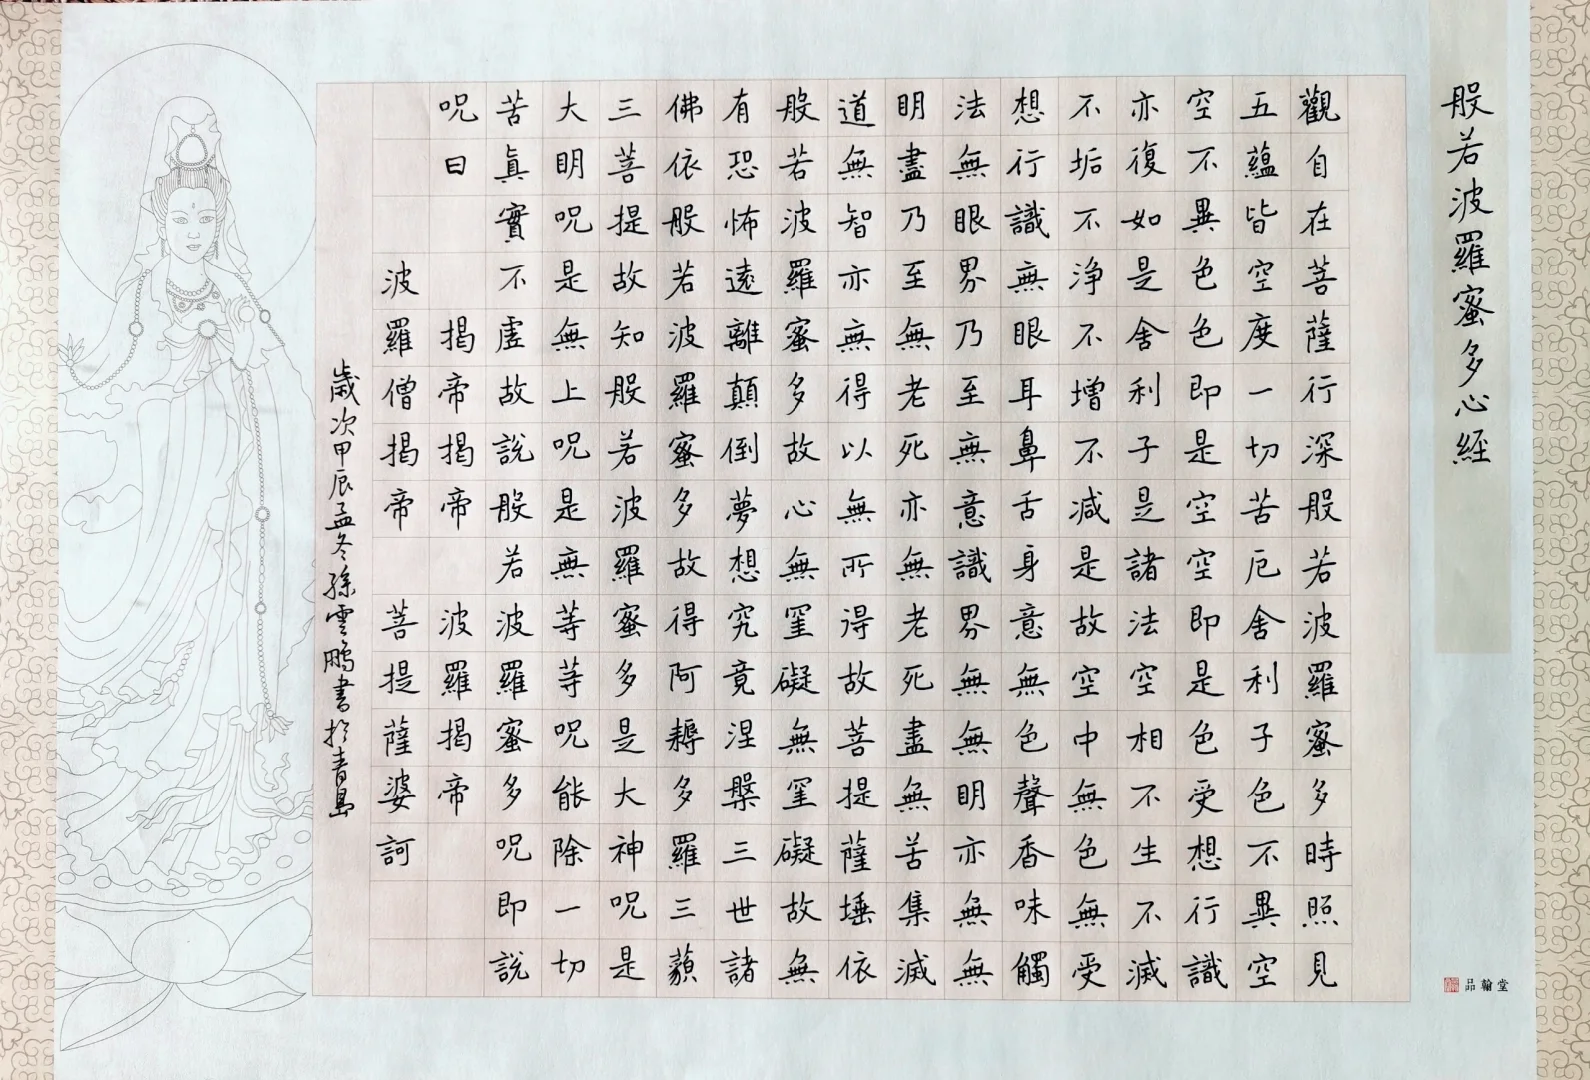 般若波羅蜜多心経
觀自在菩薩行深般若波羅蜜多時照見
五蘊皆空度一切苦厄舍利子色不異空
空不異色色即是空空即是色受想行識
亦復如是舍利子是諸法空相不生不滅
不垢不浄不增不減是故空中無色無受
想行識無眼耳鼻舌身意無色聲香味觸
法無眼界乃至無意識界無無明亦無無
明盡乃至無老死亦無老死盡無苦集滅
道無智亦無得以無所得故菩提薩埵依
般若波羅蜜多故心無罣礙無罣礙故無
有恐怖遠離顛倒夢想究竟涅槃三世諸
佛依般若波羅蜜多故得阿耨多羅三藐
三菩提故知般若波羅蜜多是大神呪是
大明呪是無上呪是無等等呪能除一切
苦真實不虛故說般若波羅蜜多呪即說
呪曰 揭帝揭帝 波羅揭帝
波羅僧揭帝 菩提薩婆訶
歲次甲辰孟冬孫雲鵬書於青島
品翰堂